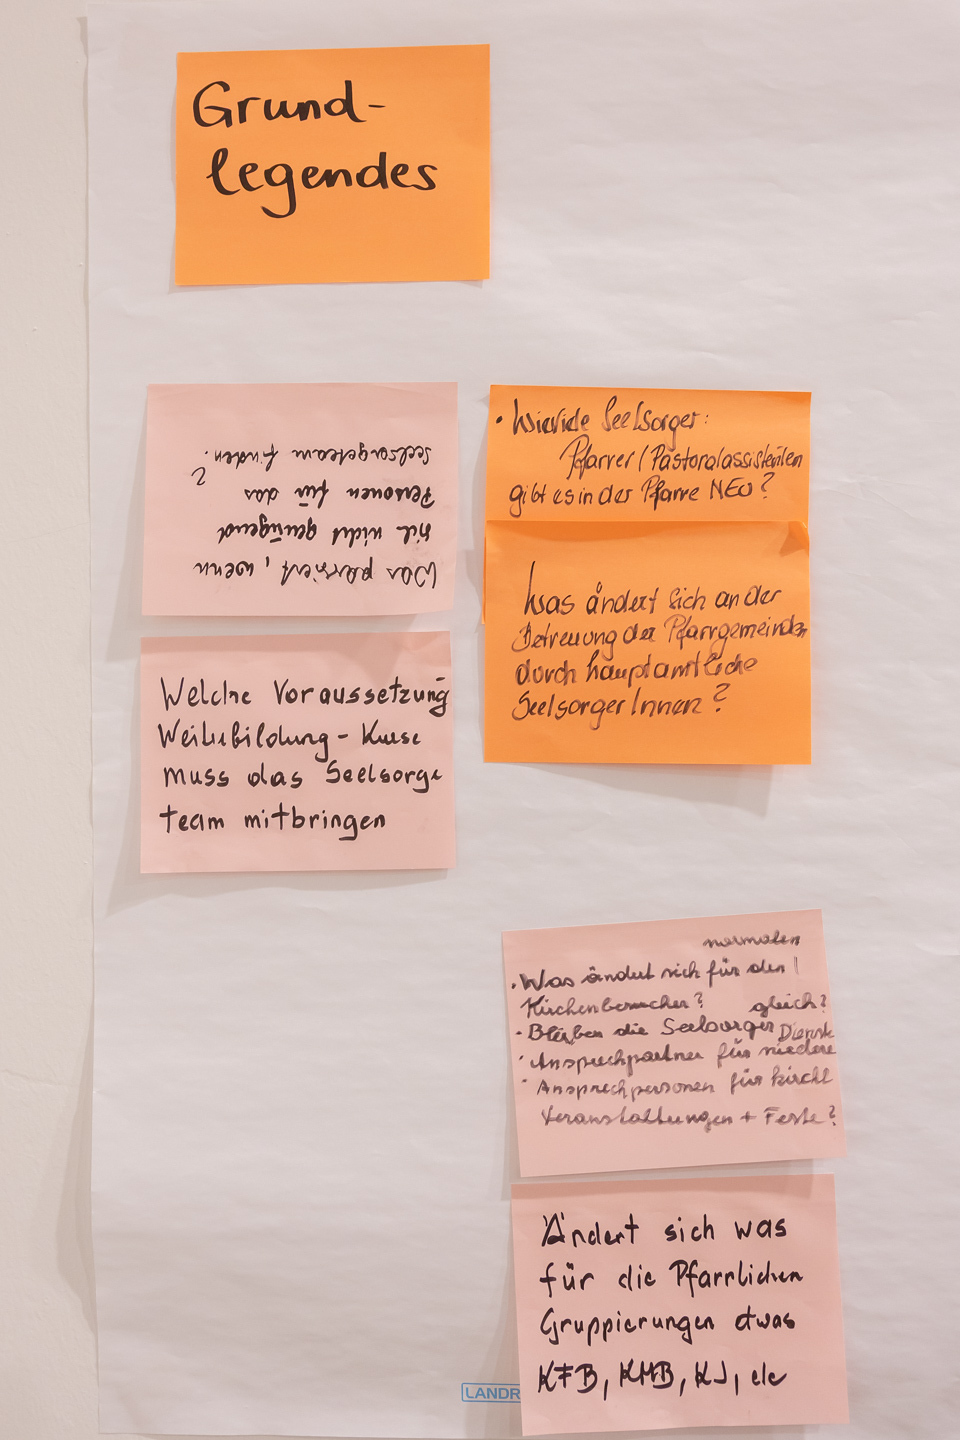 Grund-
legendes
Was passiert, wenn
wir nicht genügend
Personen für das
Seelsorgeteam finden.
?
Welche Voraussetzung
Weiterbildung - Kurse
muss das Seelsorge
team mitbringen
• Wieviele Seelsorger:
Pfarrer / Pastoralassistenten
gibt es in der Pfarre NEU?
Was ändert sich an der
Betreuung der Pfarrgemeinden
durch hauptamtliche
SeelsorgerInnen?
normalen
• Was ändert sich für den
Kirchenbesucher? gleich?
• Bleiben die Seelsorger Dienste
• Ansprechpartner für niedere
• Ansprechpersonen für kirchl
Veranstaltungen + Feste?
Ändert sich was
für die Pfarrlichen
Gruppierungen etwas
KFB, KMB, KJ, etc
LANDR